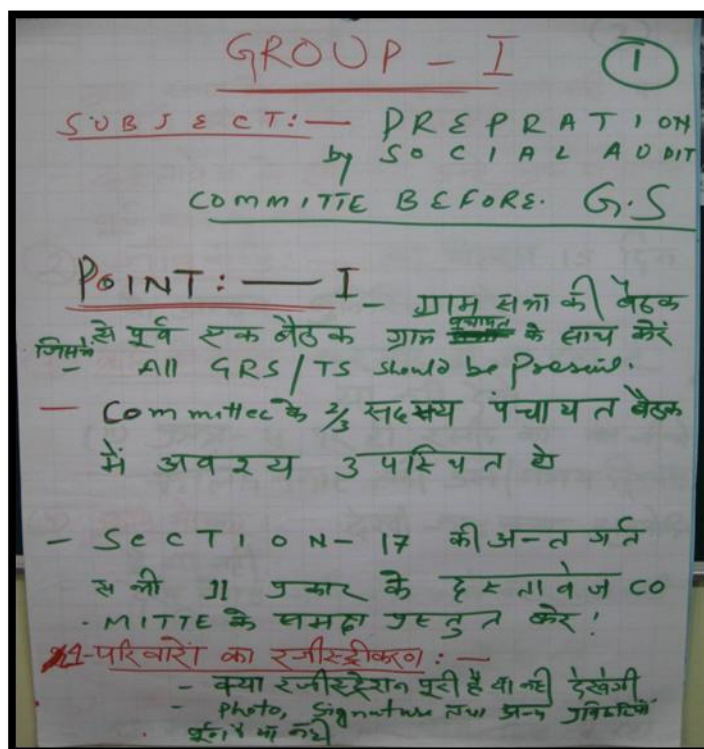 GROUP - I ①
SUBJECT:- PREPRATION
by SOCIAL AUDIT
COMMITTE BEFORE. G.S
POINT:- I - ग्राम सभा की बैठक
से पूर्व एक बैठक ग्राम पंचायत के साथ करें
जिसमें - All GRS/TS should be Present.
- Committee के 2/3 सदस्य पंचायत बैठक
में अवश्य उपस्थित हो
- SECTION-17 की अन्तर्गत
सभी 11 प्रकार के दस्तावेज CO
MITTE के समक्ष प्रस्तुत करें!
1-परिवारों का रजीस्ट्रीकरण:-
- क्या रजीस्ट्रेशन पूरी है या नहीं देखेगी
- Photo, Signature तथा अन्य प्रविष्टियाँ
पूर्ण है या नहीं